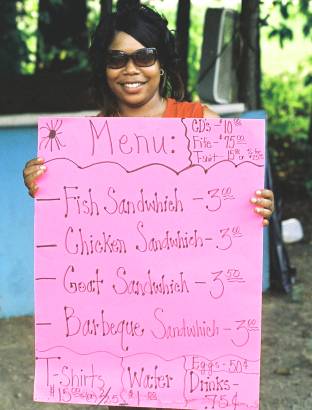 Menu:
CD's - $10.00
Fife - $75.00
T-Shirt 15.00
Fish Sandwhich - 3.00
Chicken Sandwhich - 3.00
Goat Sandwhich - 3.50
Barbeque Sandwhich - 3.00
T-Shirts
$15.00
Water
$1.00
Eggs - 50¢
Drinks -
75¢